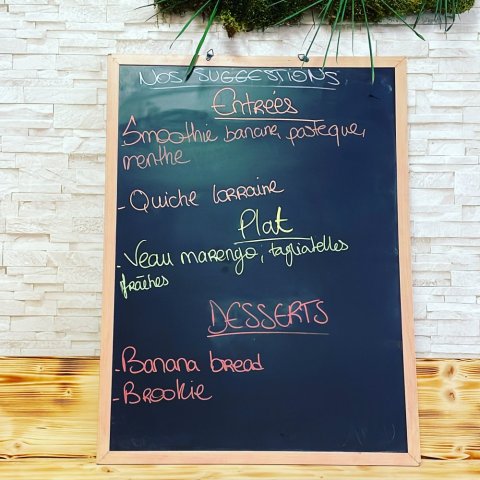 NOS SUGGESTIONS
Entrées
- Smoothie banane, pasteque,
menthe
- Quiche lorraine
Plat
- Veau marengo, tagliatelles
fraîches
DESSERTS
- Banana bread
- Brookie